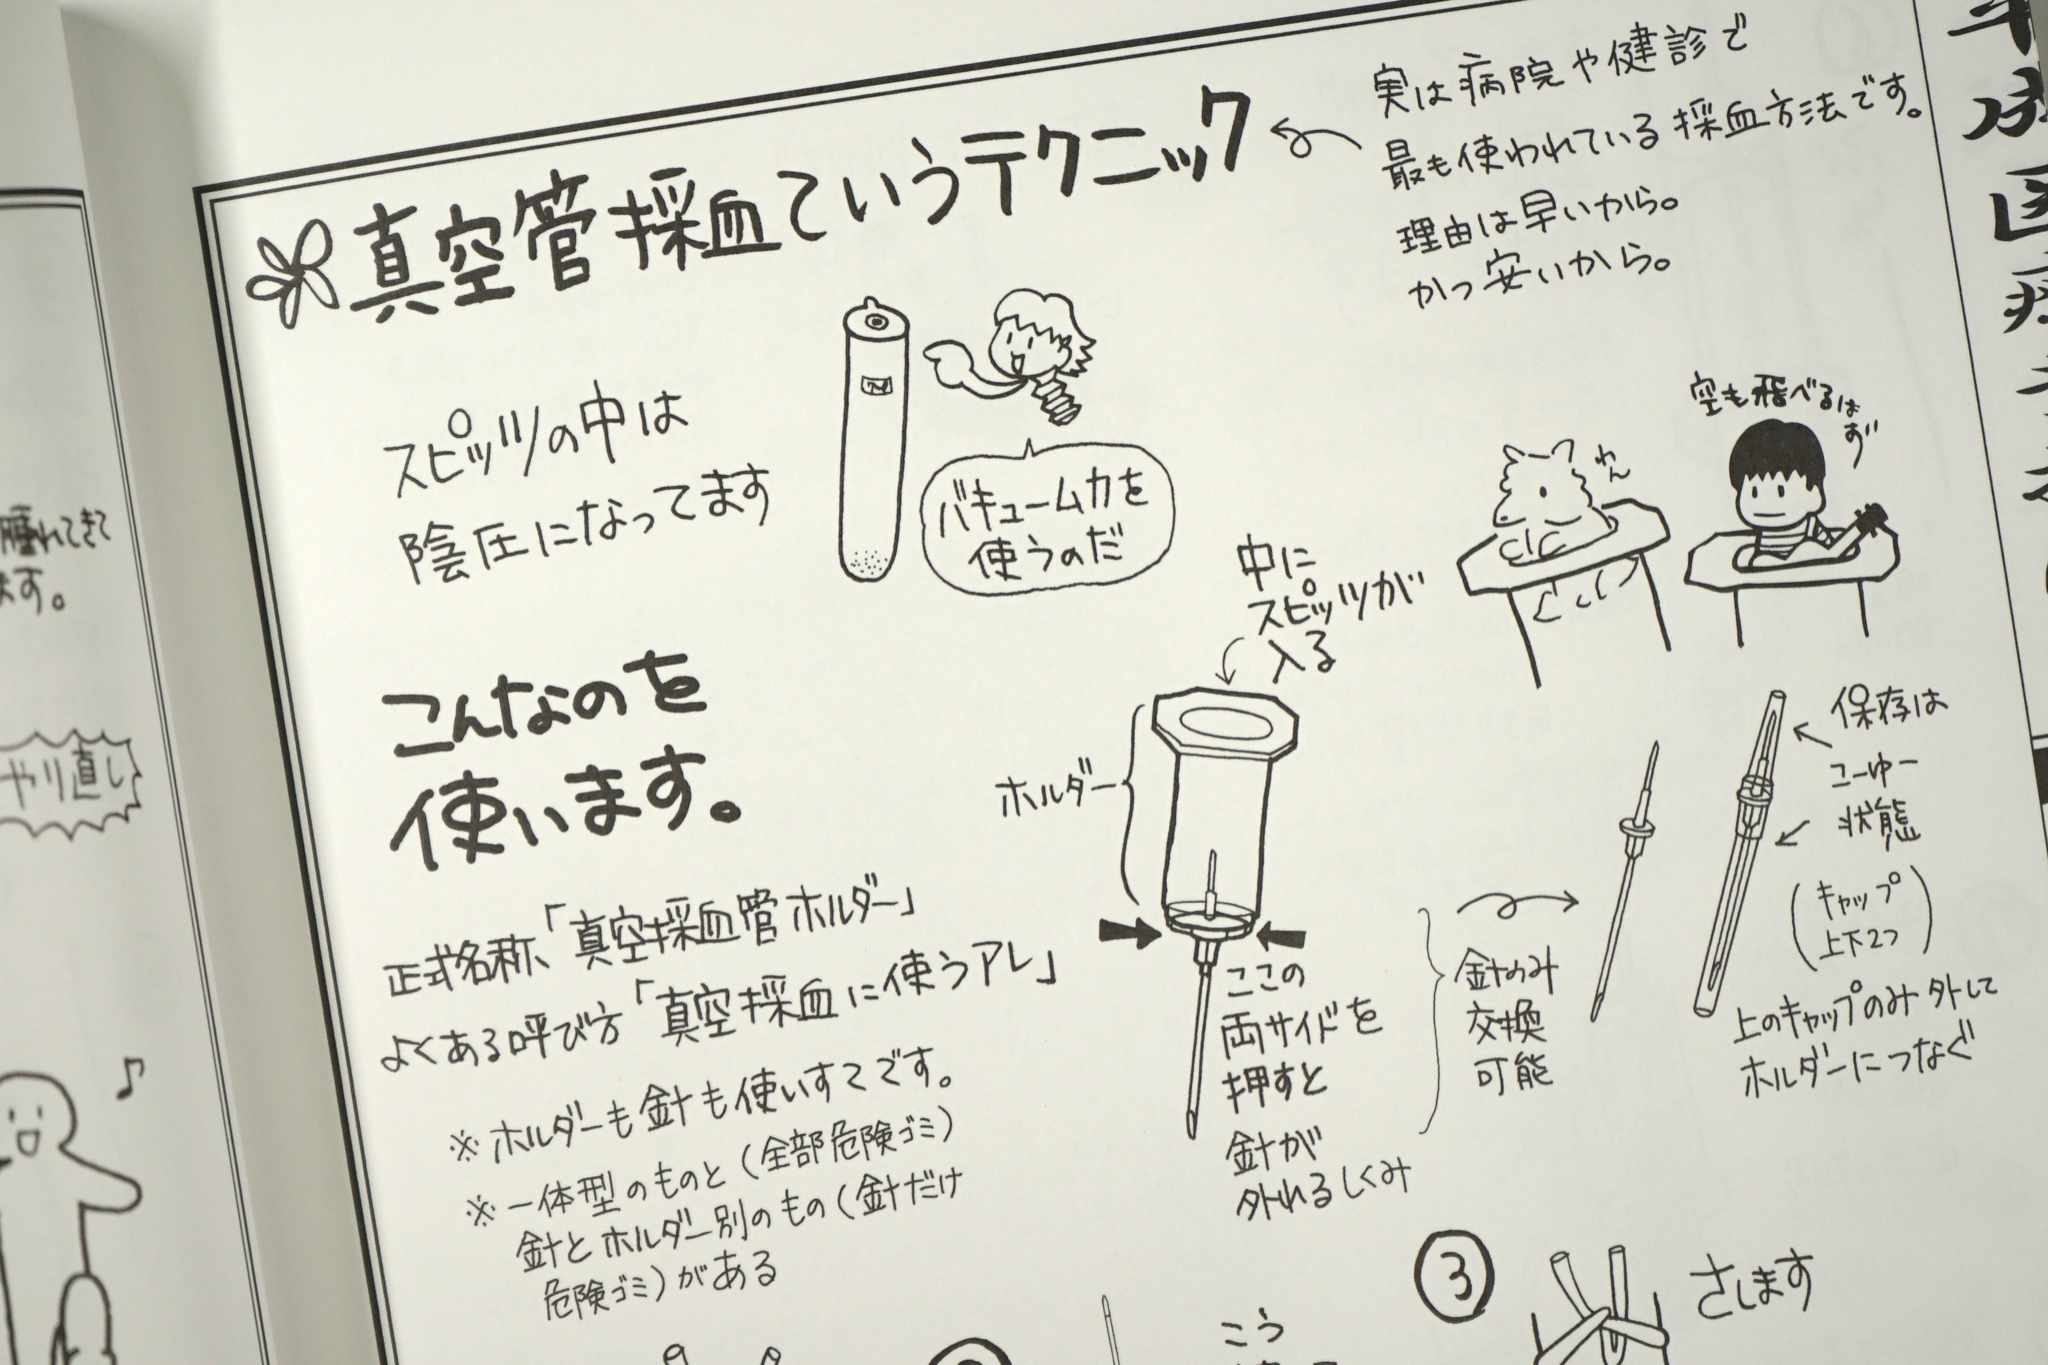 真空管採血ていうテクニック
実は病院や健診で
最も使われている採血方法です。
理由は早いから。
かつ安いから。
スピッツの中は
陰圧になってます
バキューム力を
使うのだ
わん
空も飛べるは
ず
こんなのを
使います。
中に
スピッツが
入る
ホルダー
保存は
こーゆー
状態
(キャップ
上下2つ)
上のキャップのみ外して
ホルダーにつなぐ
針のみ
交換
可能
ここの
両サイドを
押すと
針が
外れるしくみ
正式名称、「真空採血管ホルダー」
よくある呼び方「真空採血に使うアレ」
※ホルダーも針も使いすてです。
※一体型のものと(全部危険ゴミ)
針とホルダー別のもの(針だけ
危険ゴミ)がある
こう
③
さします
腫れてきて
ます。
やり直し